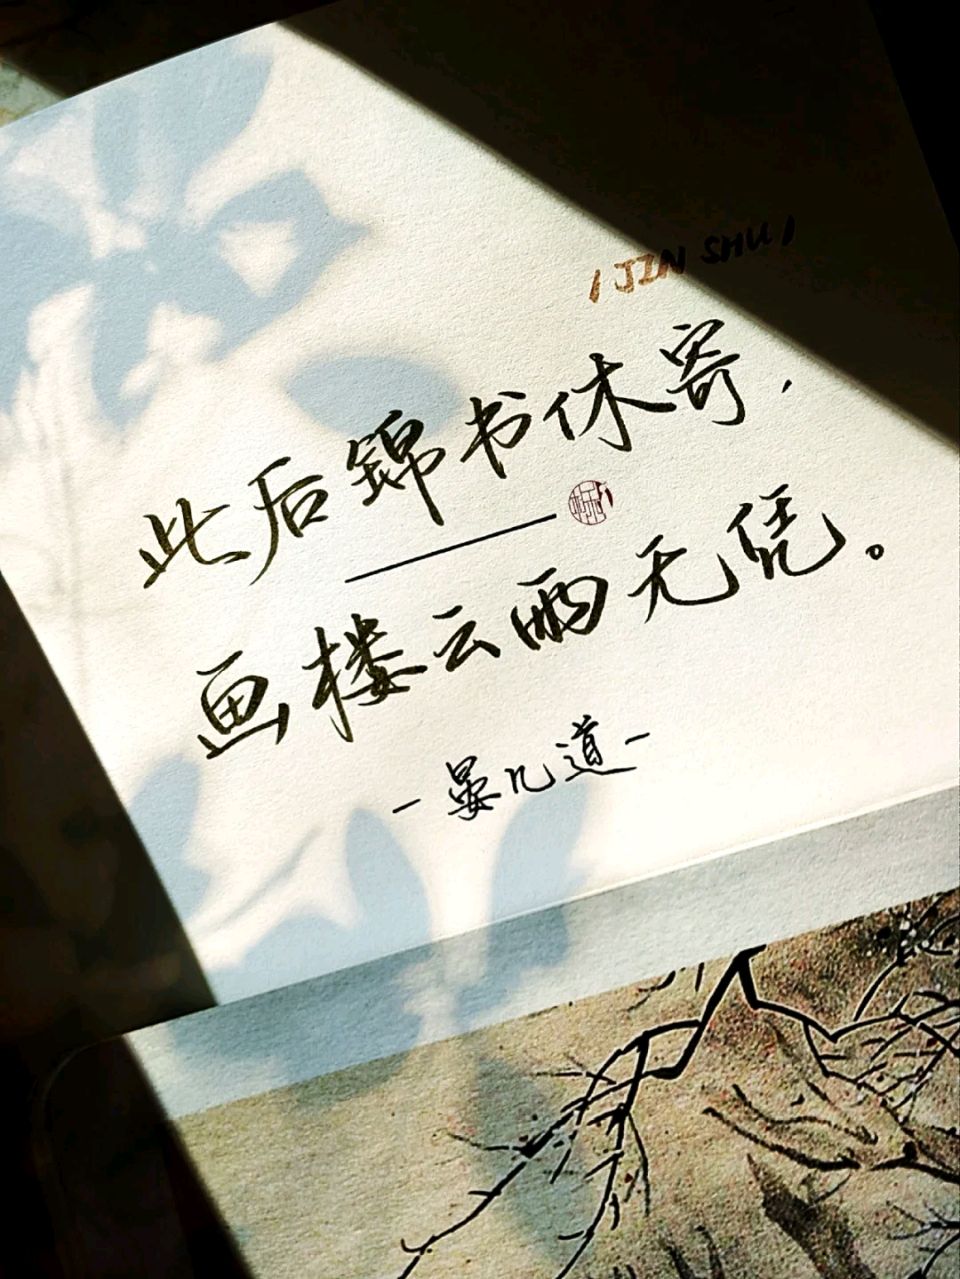 / JIN SHU /
此后锦书休寄，
画楼云雨无凭。
-晏几道-